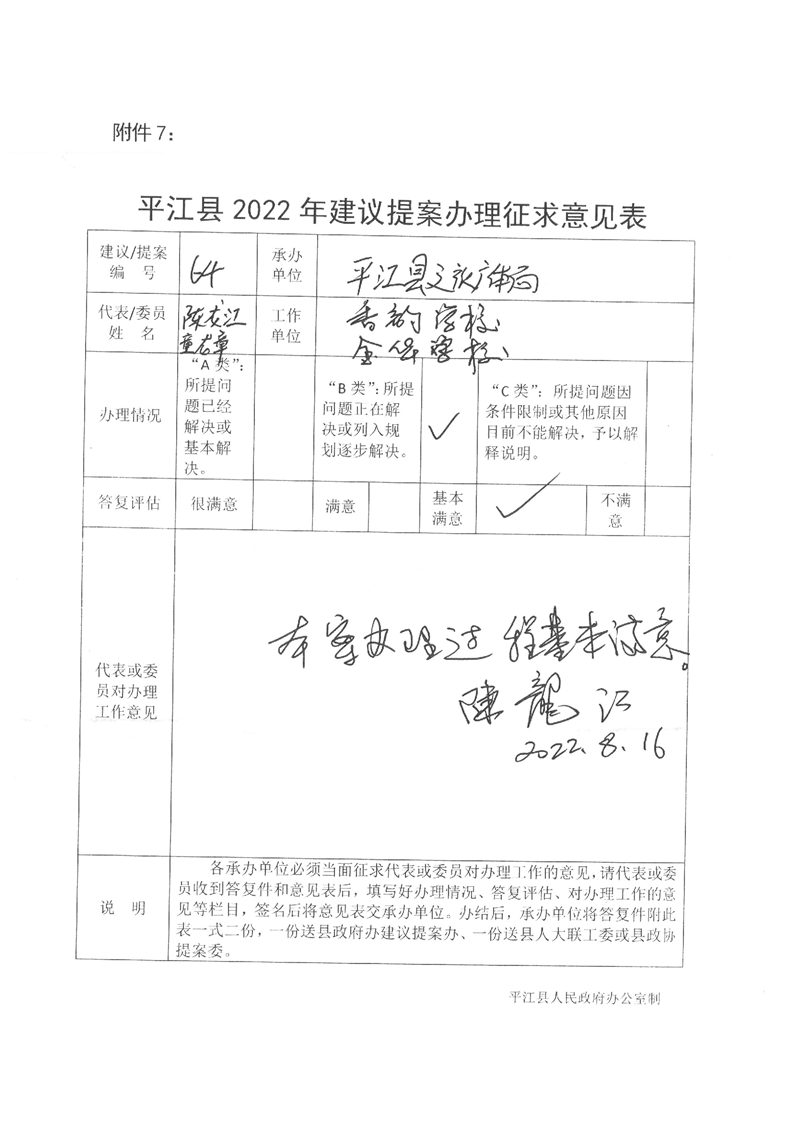 附件 7：
平江县 2022 年建议提案办理征求意见表
建议/提案
编 号
64
承办
单位
平江县文旅广体局
代表/委员
姓 名
陈龙江
工作
单位
学校
学校
办理情况
“A 类”：
所提问
题已经
解决或
基本解
决。
“B 类”：所提
问题正在解
决或列入规
划逐步解决。
✓
“C 类”：所提问题因
条件限制或其他原因
目前不能解决，予以解
释说明。
答复评估
很满意
满意
基本
满意
✓
不满
意
代表或委
员对办理
工作意见
本案办理过程基本满意。
陳龍江
2022.8.16
说 明
各承办单位必须当面征求代表或委员对办理工作的意见，请代表或委
员收到答复件和意见表后，填写好办理情况、答复评估、对办理工作的意
见等栏目，签名后将意见表交承办单位。办结后，承办单位将答复件附此
表一式二份，一份送县政府办建议提案办、一份送县人大联工委或县政协
提案委。
平江县人民政府办公室制